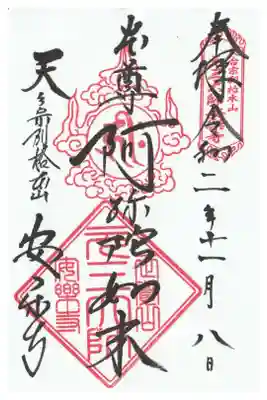 奉拝 令和二年十一月八日
本尊 阿弥陀如来
天台宗別格本山 安楽寺